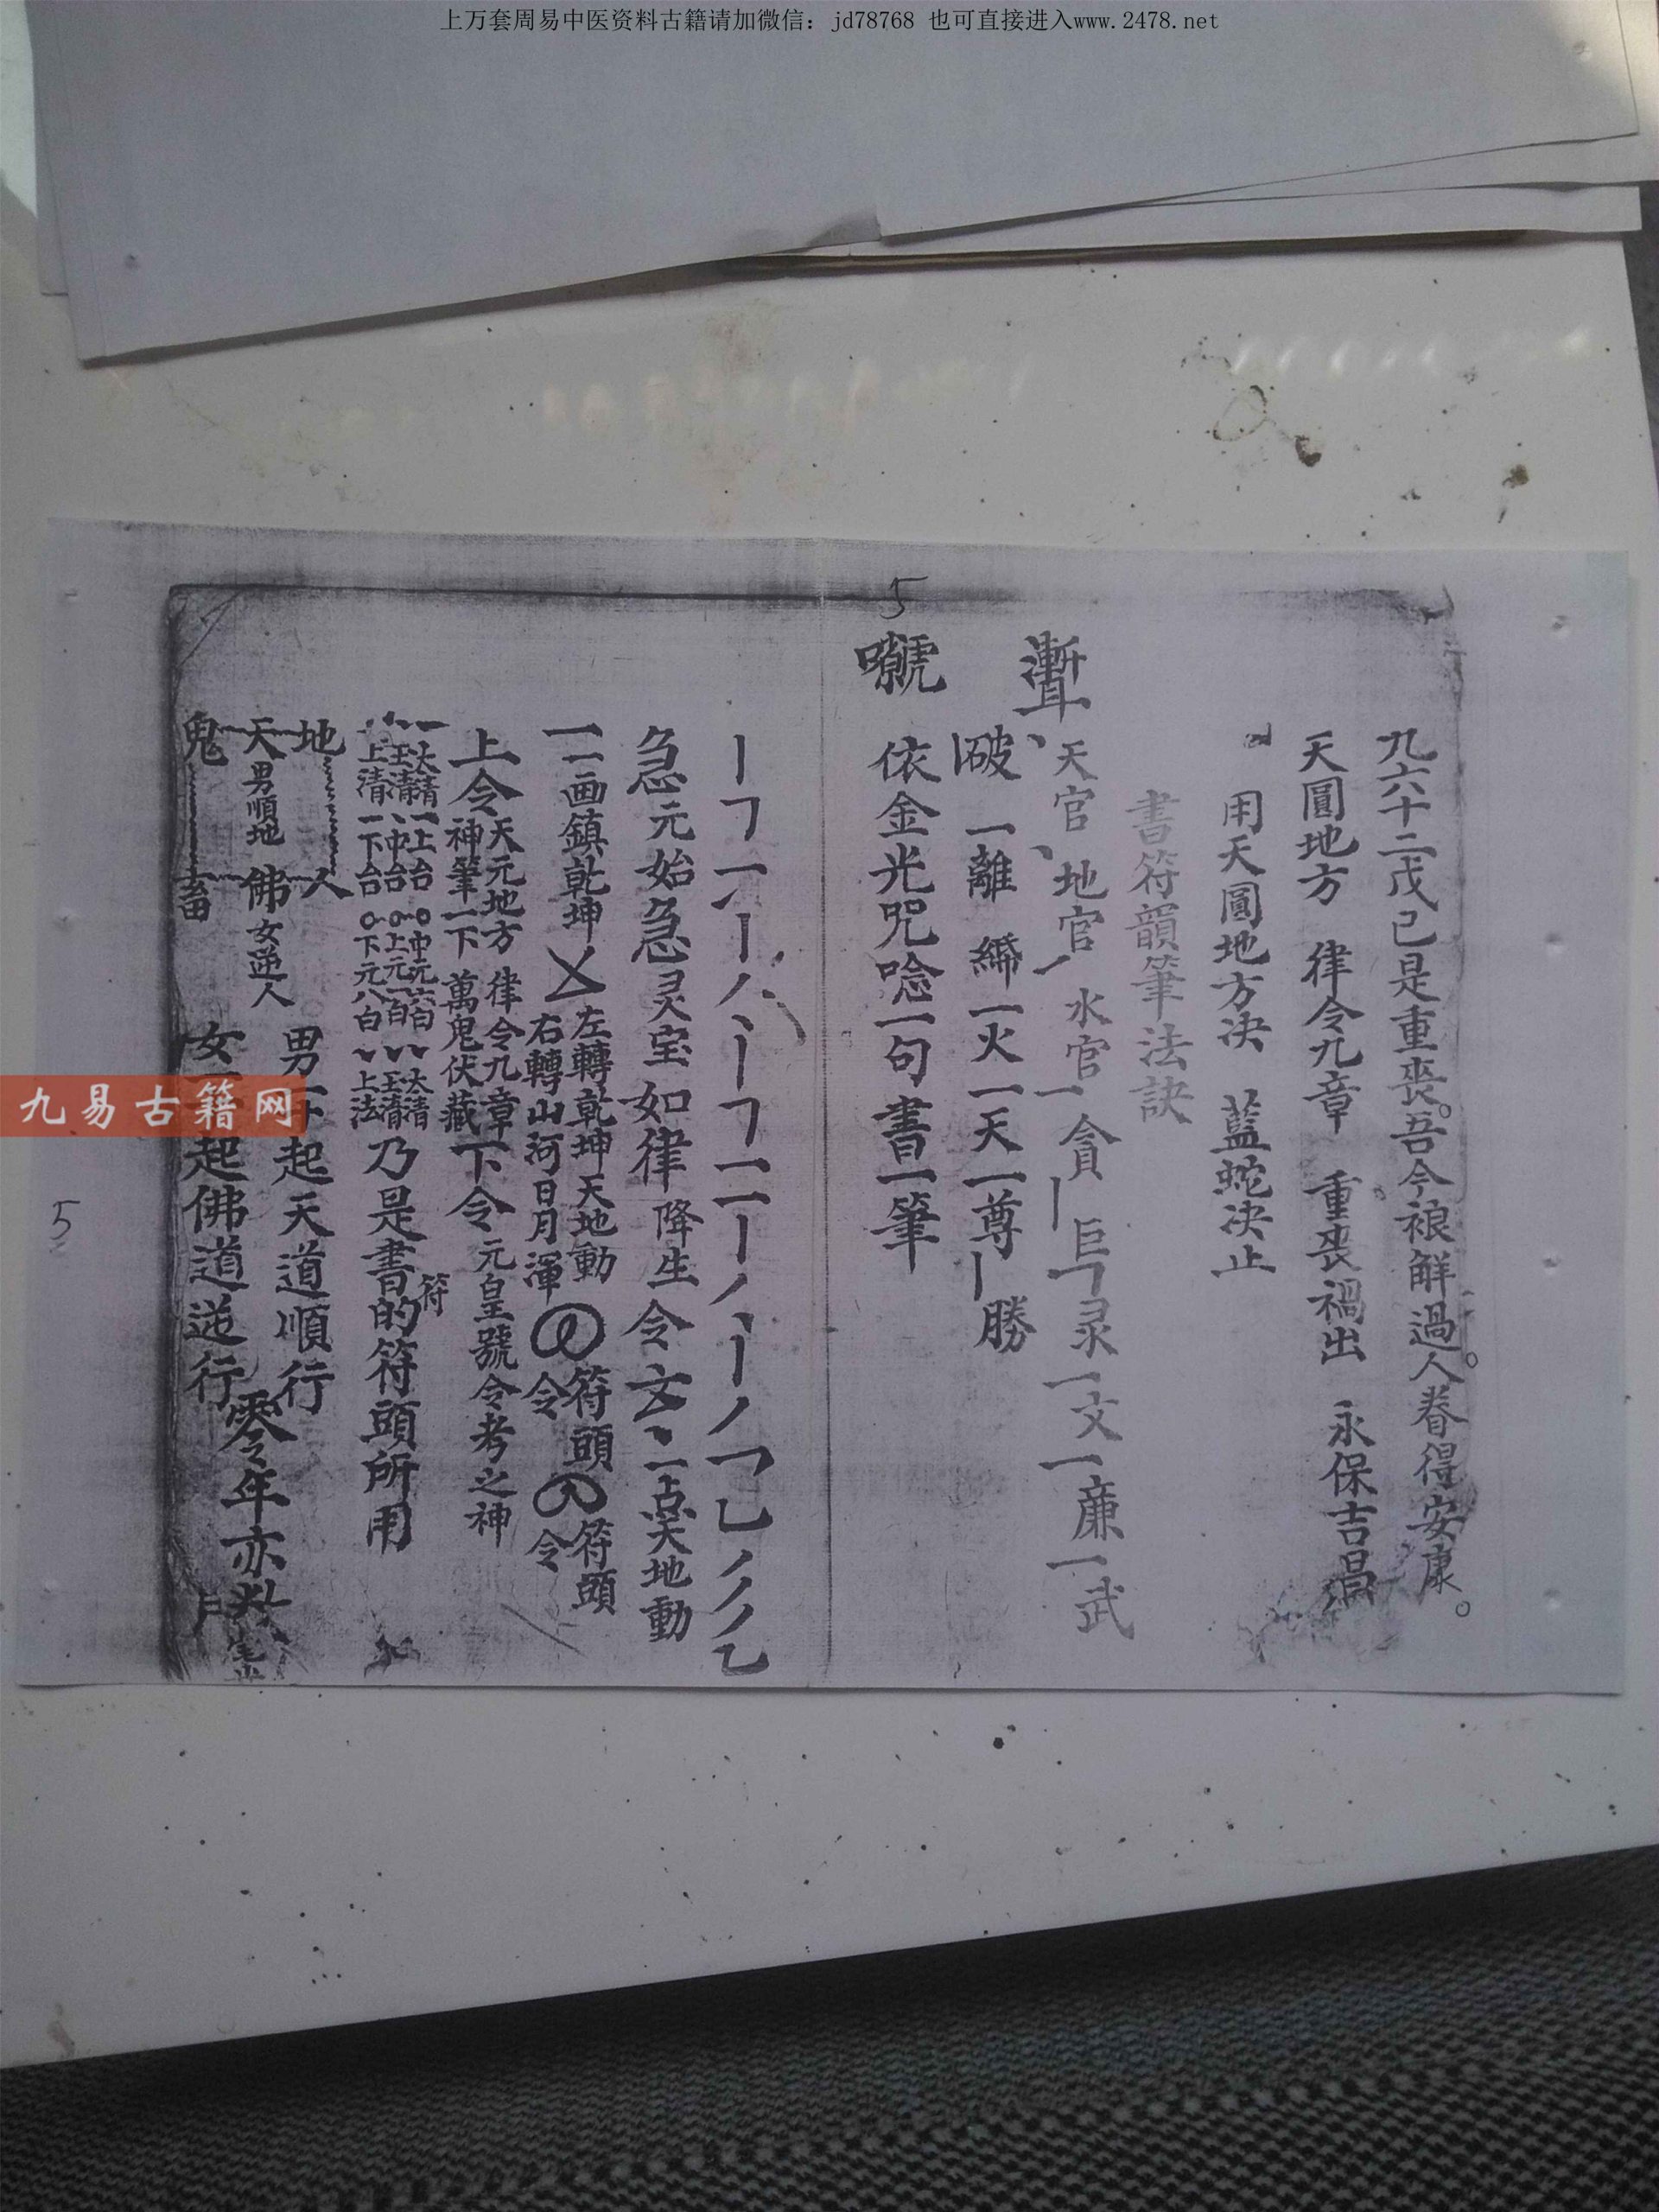 上万套周易中医资料古籍请加微信：jd78768 也可直接进入www.2478.net
5
九六十二戊己是重喪。吾今禳解過。人眷得安康。
天圓地方 律令九章 重喪禍出 永保吉昌
用天圓地方决 藍蛇决止
書符韻筆法訣
、天官、地官丿水官一貪丨巨𠃍录一文一廉一武
破 一離 一火一天一尊丨勝
依金光咒唸一句書一筆
急元始急灵宝如律降生令文、一点天地動
一二画鎮乾坤 左轉乾坤天地動 符頭 符頭
右轉山河日月渾 令 令
上令 天元地方 律令九章 下令 元皇號令考之神
神筆一下 萬鬼伏藏
一太清一上台 中元六百 太清
玉清 中台 上元一百 玉清
上清一下台 下元八白 上法
乃是書的符頭所用
符
地 人
天男順地 佛女逆人
鬼 畜
男一下起天道順行
女 起佛道逆行
零年亦
5
九易古籍网